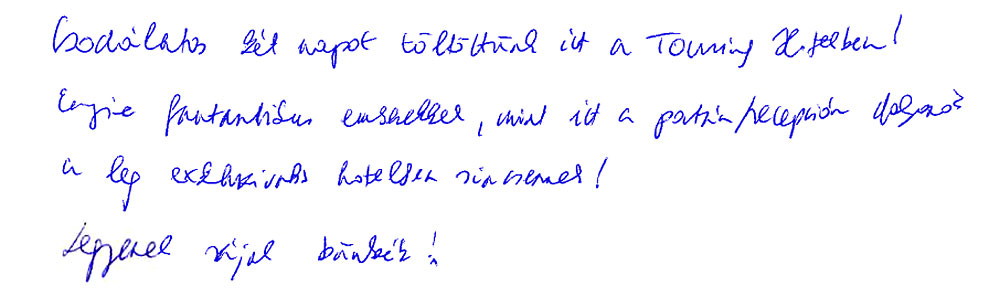 Csodálatos két napot töltöttünk itt a Touring Hotelben!
Ennyire fantasztikus emberekkel, mint itt a portán/recepción dolgozó
a leg exkluzívabb hotelben sincsenek!
Legyenek rájuk büszkék!